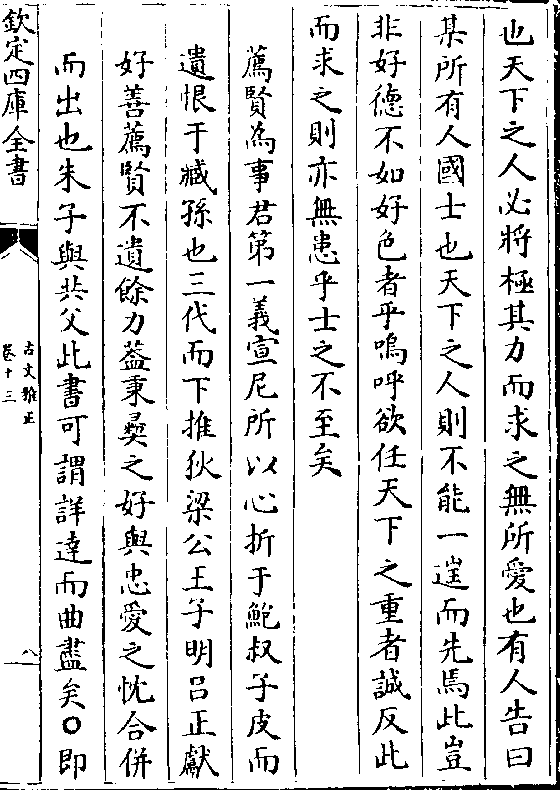 也天下之人必將極其力而求之無所愛也有人告曰
某所有人國士也天下之人則不能一遑而先焉此豈
非好德不如好色者乎嗚呼欲任天下之重者誠反此
而求之則亦無患乎士之不至矣
薦賢為事君第一義宣尼所以心折于鮑叔子皮而
遺恨于臧孫也三代而下推狄梁公王子明呂正獻
好善薦賢不遺餘力葢秉彛之好與忠愛之忱合併
而出也朱子與共父此書可謂詳達而曲盡矣○即
欽定四庫全書
古文雅正
卷十三
八